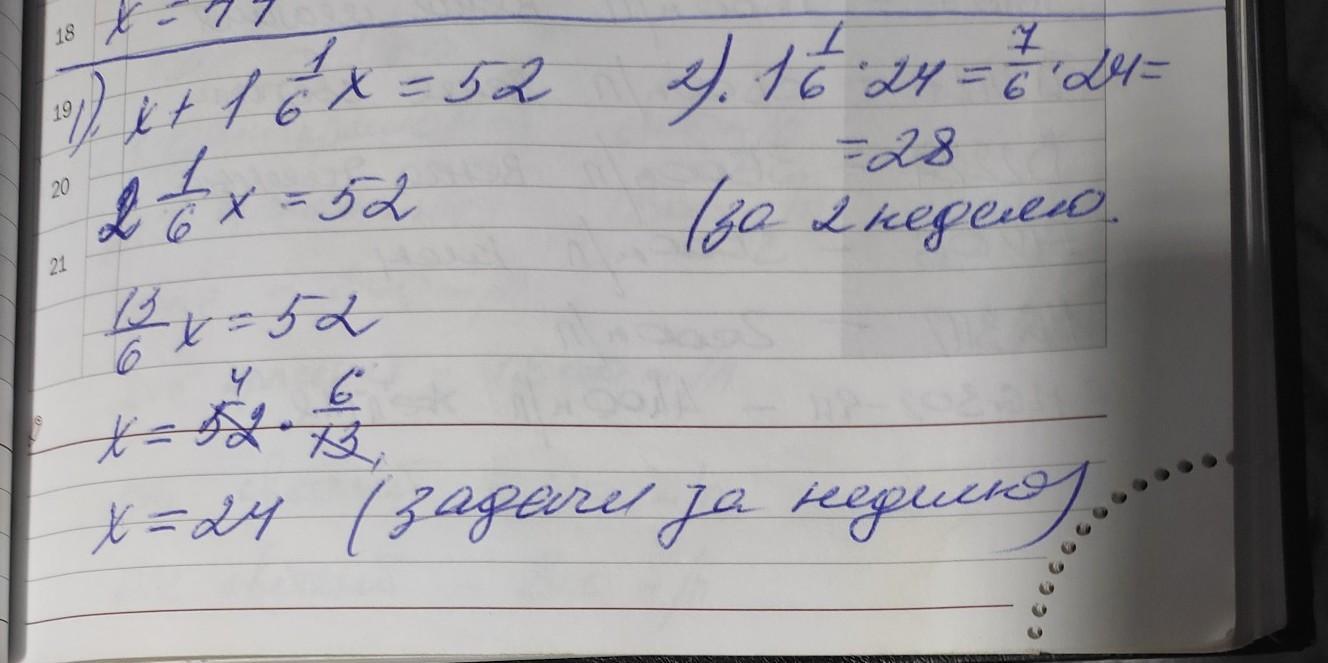 18
x = 77
19
1). x + 1 1/6 x = 52
2 1/6 x = 52
20
21
13/6 x = 52
x = 52 · 6/13
4
x = 24 (задачи за неделю)
2). 1 1/6 · 24 = 7/6 · 24 =
= 28
(за 2 неделю.